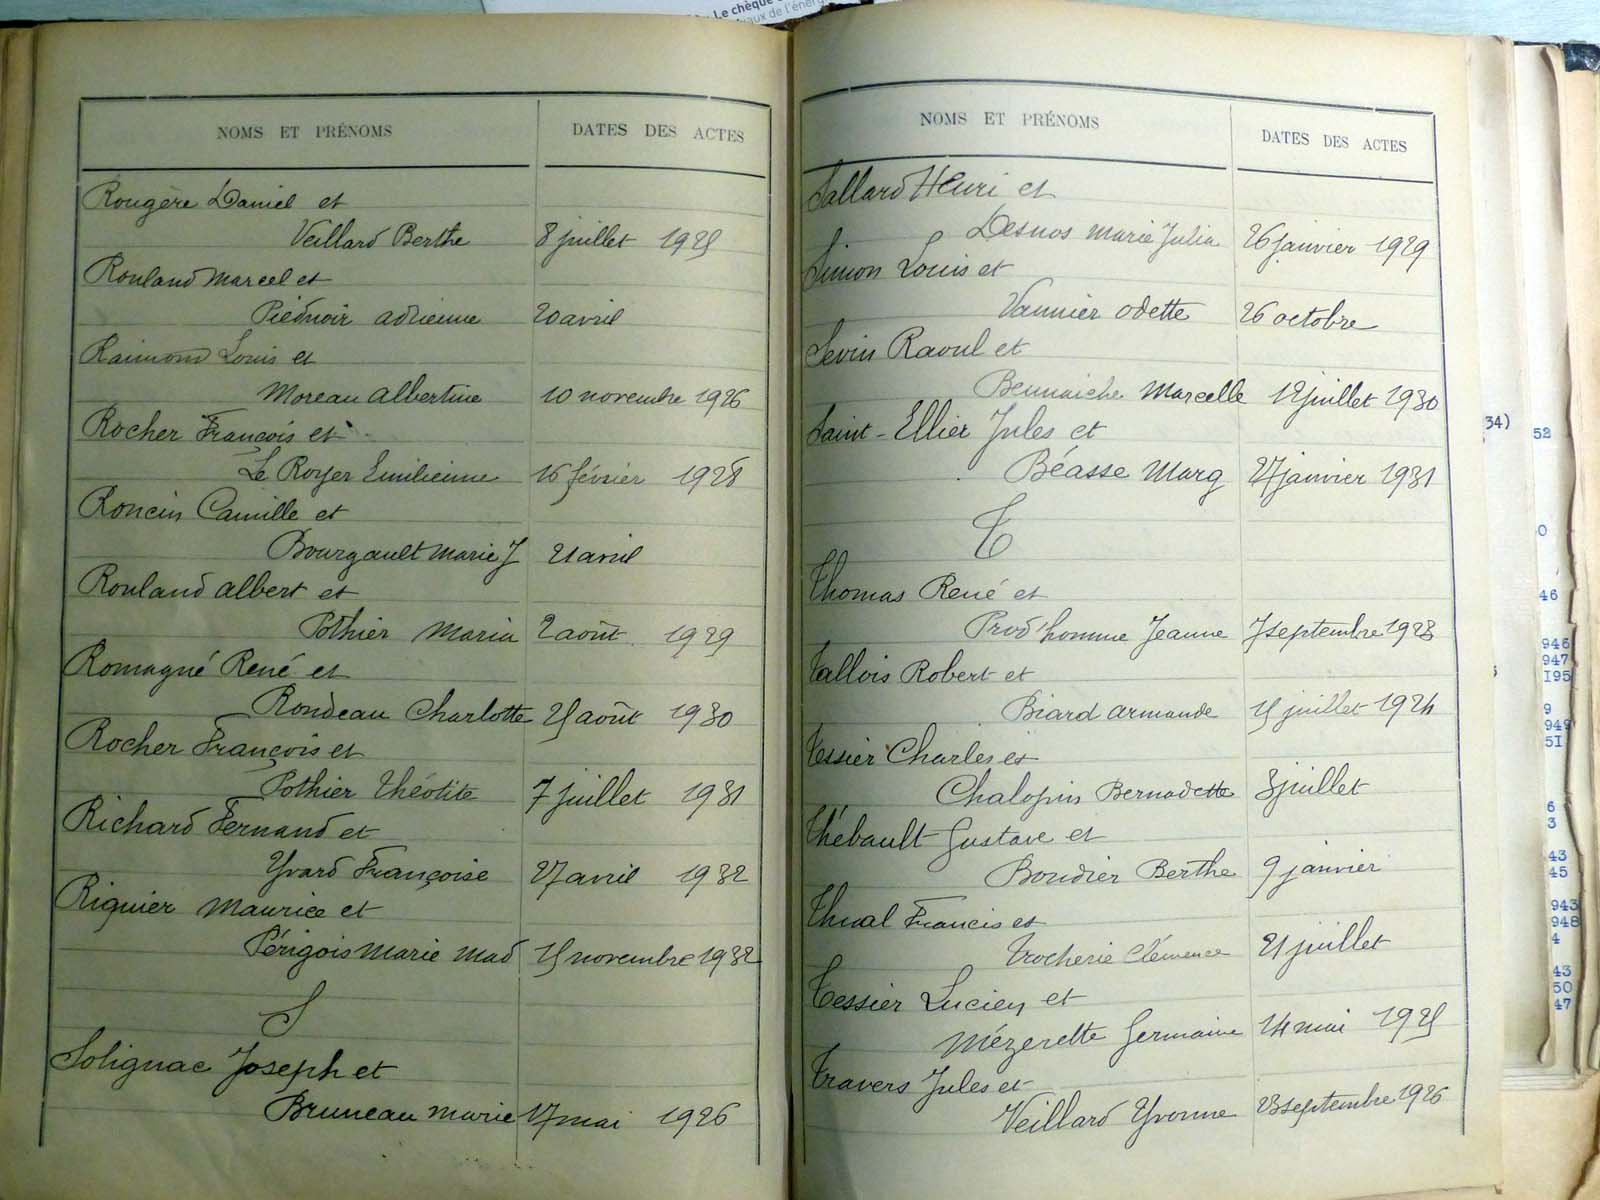 Le chèque
aux de l'énerg
NOMS ET PRÉNOMS DATES DES ACTES
Rougère Daniel et
Veillard Berthe 8 juillet 1925
Rouland Marcel et
Piednoir adrienne 20 avril
Raimond Louis et
Moreau albertine 10 novembre 1926
Rocher François et
Le Royer Emilienne 16 février 1928
Roncin Camille et
Bourgault Marie J 21 avril
Rouland albert et
Pothier Maria 2 août 1929
Romagné René et
Rondeau Charlotte 25 août 1930
Rocher François et
Pothier Théotite 7 juillet 1931
Richard Fernand et
Yvard Françoise 27 avril 1932
Riguier Maurice et
Périgois Marie Mad 15 novembre 1932
S
Solignac Joseph et
Bruneau Marie 17 mai 1926
NOMS ET PRÉNOMS DATES DES ACTES
Sallard Henri et
Desnos Marie Julia 26 janvier 1929
Simon Louis et
Vannier Odette 26 octobre
Sevin Raoul et
Bennaiche Marcelle 12 juillet 1930
Saint-Ellier Jules et
Béasse Marg 27 janvier 1931
T
Thomas René et
Prod'homme Jeanne 7 septembre 1923
Tallois Robert et
Biard armande 15 juillet 1924
Tessier Charles et
Chalopin Bernadette 3 juillet
Thébault Gustave et
Boudier Berthe 9 janvier
Thual Francis et
Trocherie Clémence 21 juillet
Tessier Lucien et
Mézerette Germaine 14 mai 1925
Travers Jules et
Veillard Yvonne 23 septembre 1926
34)
52
0
46
946
947
I95
9
949
5I
6
3
43
45
943
948
4
43
50
47